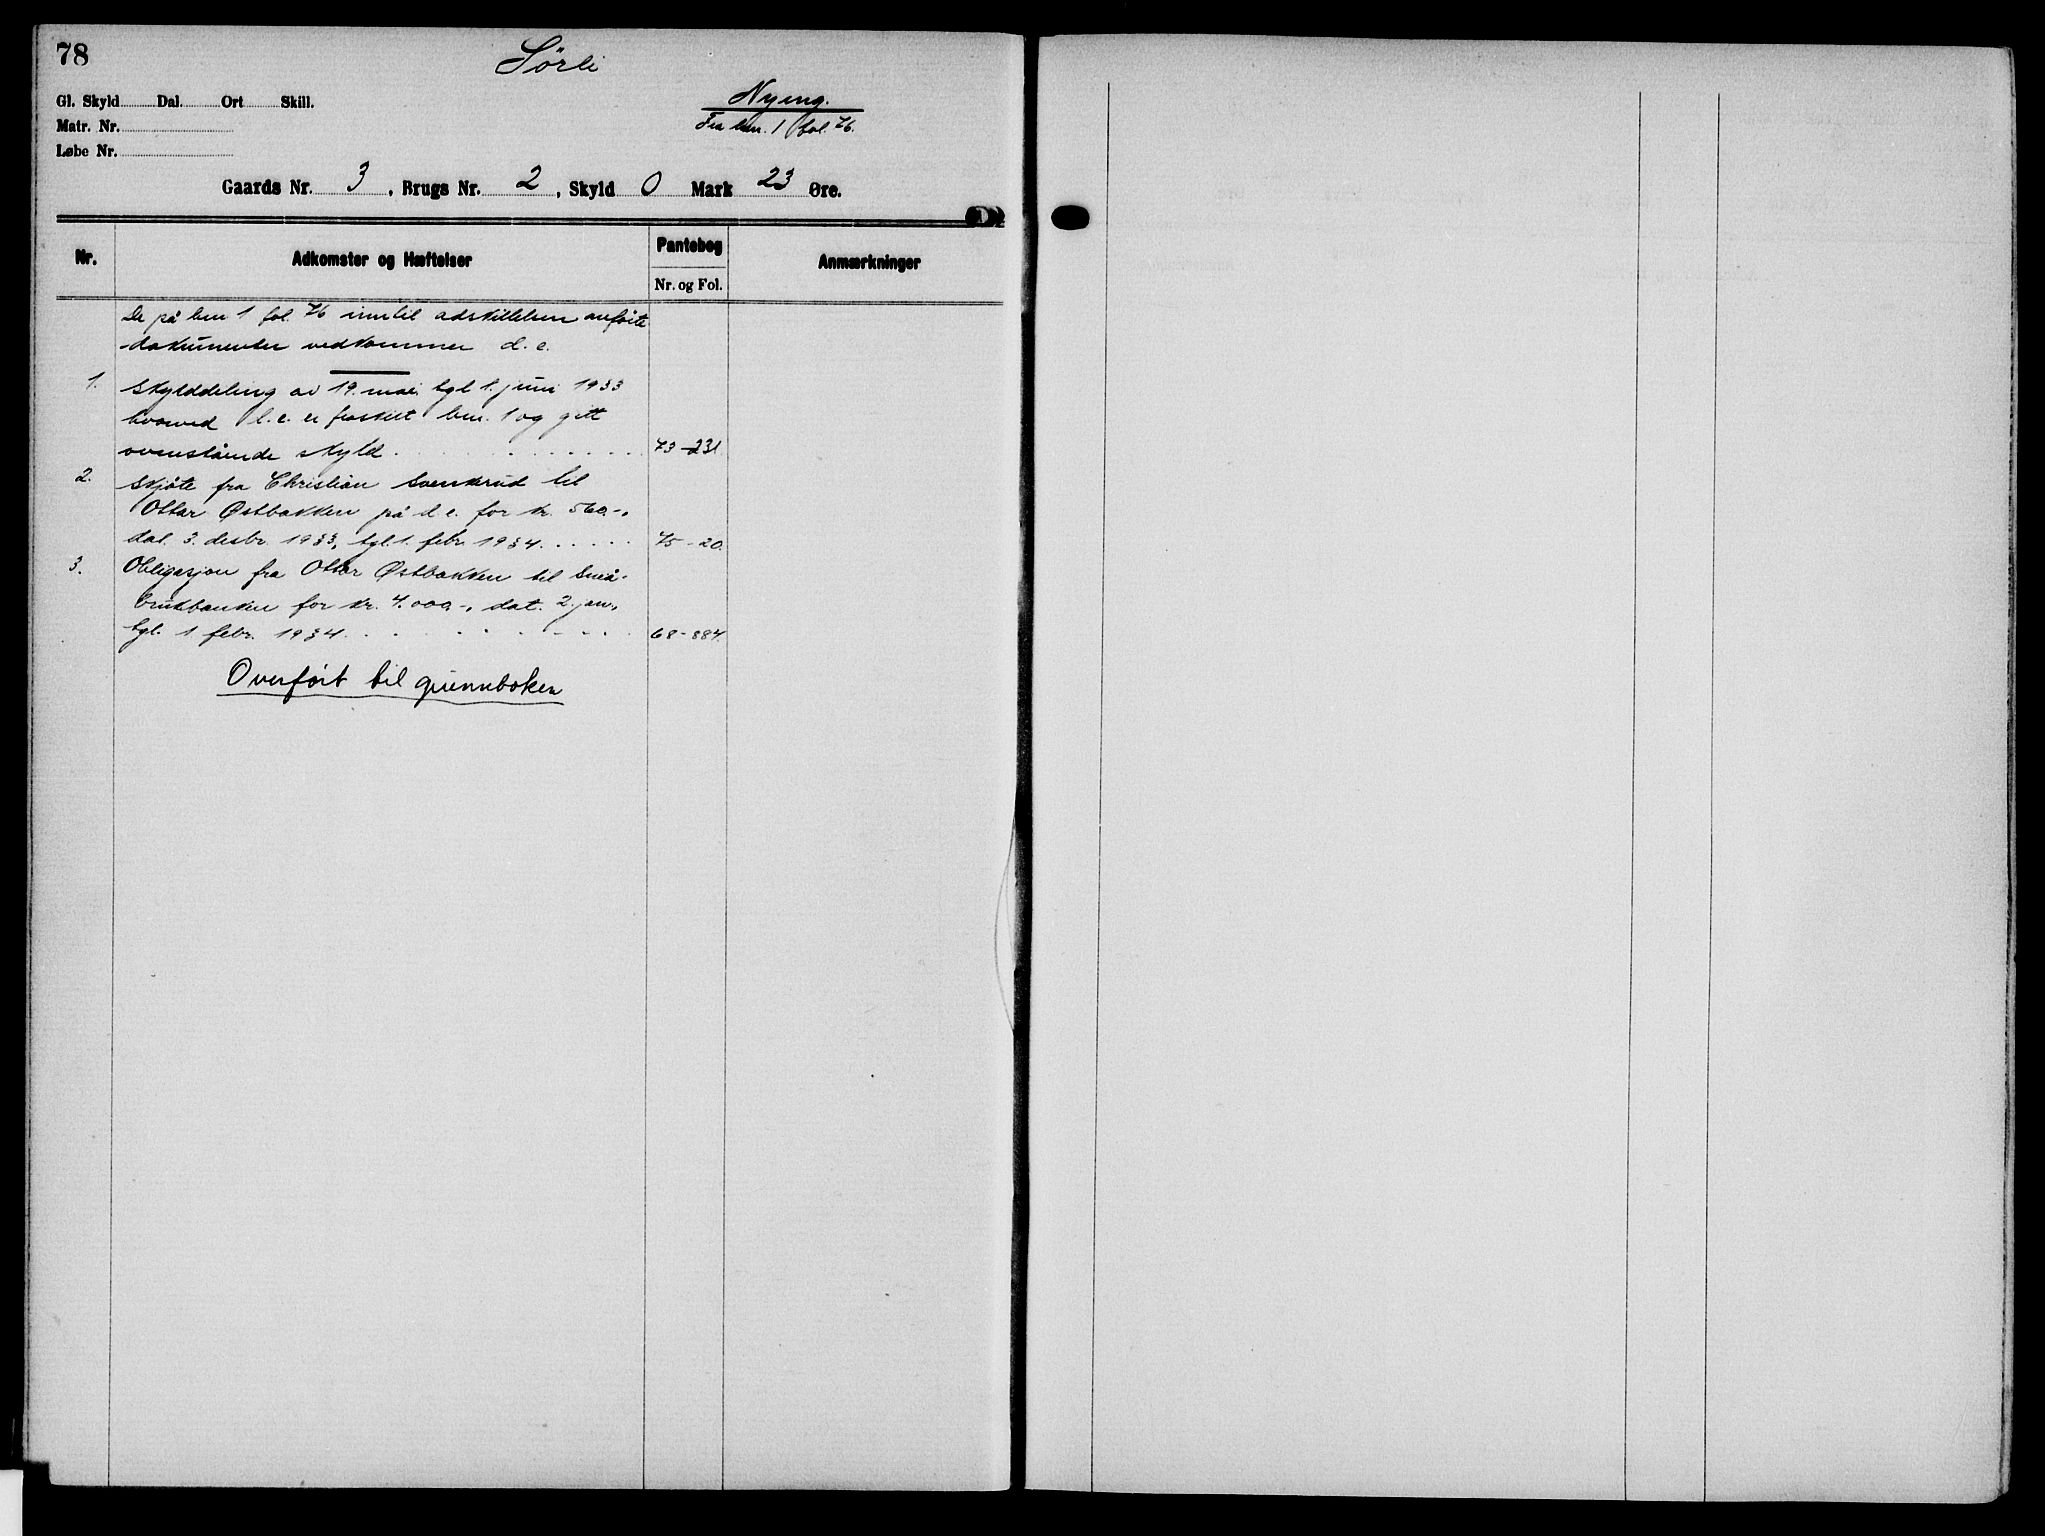 78
Sørli
Gl. Skyld Dal. Ort Skill.
Nyeng.
Matr. Nr.
Fra bnr. 1 fol. 76.
Løbe Nr.
Gaards Nr. 3, Brugs Nr. 2, Skyld 0 Mark 23 Øre.
Nr. Adkomster og Hæftelser Pantebog Anmærkninger
Nr. og Fol.
De på bnr 1 fol. 76 inntil adskillelsen anførte
dokumenter vedkommer d. e.
1. Skylddeling av 19. mai, tgl 1. juni 1933
hvorved d. e. er fraskilt bnr. 1 og gitt
ovenstående skyld . . . . . . . . . 73-231
2. Skjøte fra Christian Svenkerud til
Ottar Østbakken på d. e. for kr. 560.-,
dat. 3. desbr. 1933, tgl. 1. febr. 1934. . . . . 75-20.
3. Obligasjon fra Ottar Østbakken til Små-
brukbanken for kr. 4.000.-, dat. 2. jan.,
tgl. 1 febr. 1934. . . . . . . . . 68-884.
Overført til grunnboken